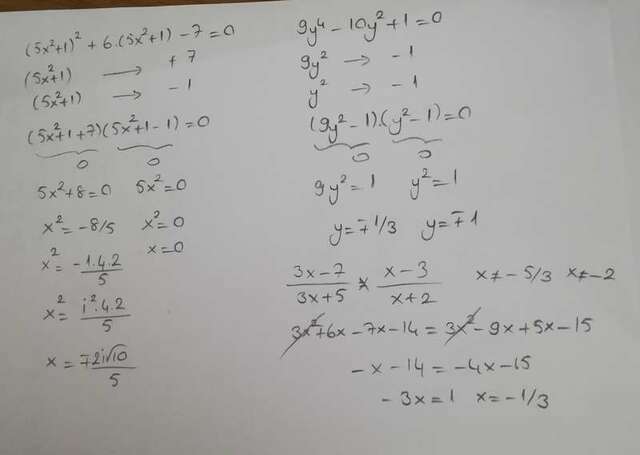 (5x²+1)² + 6.(5x²+1) - 7 = 0
(5x²+1) → + 7
(5x²+1) → - 1
(5x²+1+7)(5x²+1-1) = 0
0 0
5x²+8=0 5x²=0
x² = -8/5 x²=0
x² = -1.4.2/5 x=0
x² = i².4.2/5
x = ∓2i√10/5
9y⁴ - 10y² + 1 = 0
9y² → - 1
y² → - 1
(9y²-1).(y²-1) = 0
0 0
9y²=1 y²=1
y=∓1/3 y=∓1
3x-7/3x+5 × x-3/x+2 x≠-5/3 x≠-2
3x²+6x-7x-14 = 3x²-9x+5x-15
-x-14 = -4x-15
-3x=1 x=-1/3